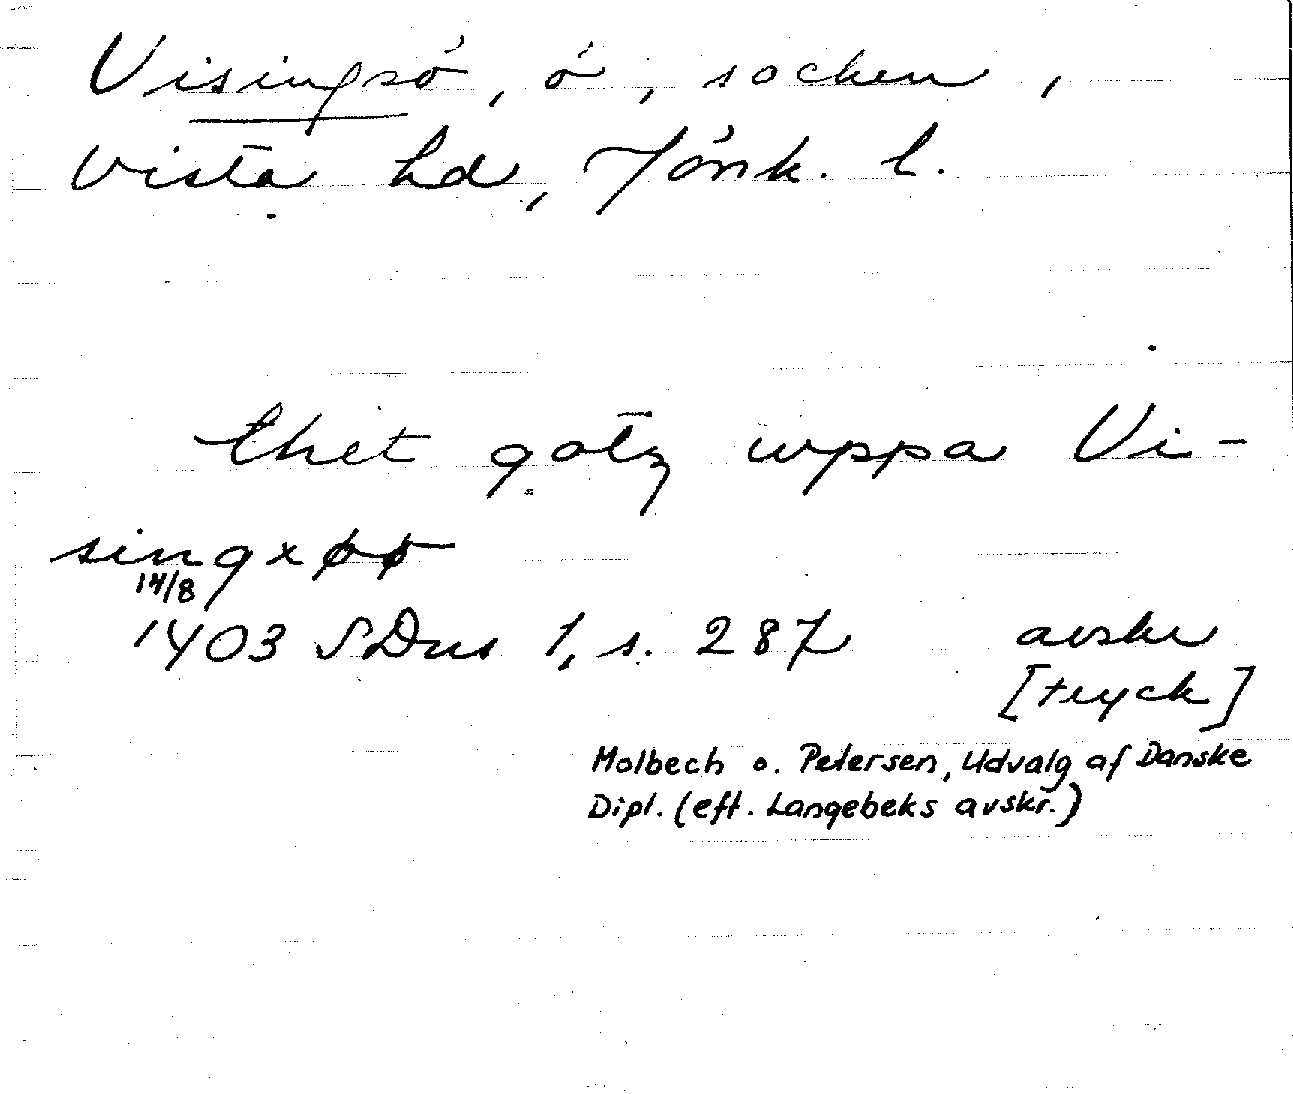 Visingsö, ö, socken,
Vista hd, Jönk. l.
thet gotz uppa Vi-
singxøø
14/8
1403 SDns 1, s. 287 avskr
[tryck]
Molbech o. Petersen, Udvalg af Danske
Dipl. (eft. Langebeks avskr.)